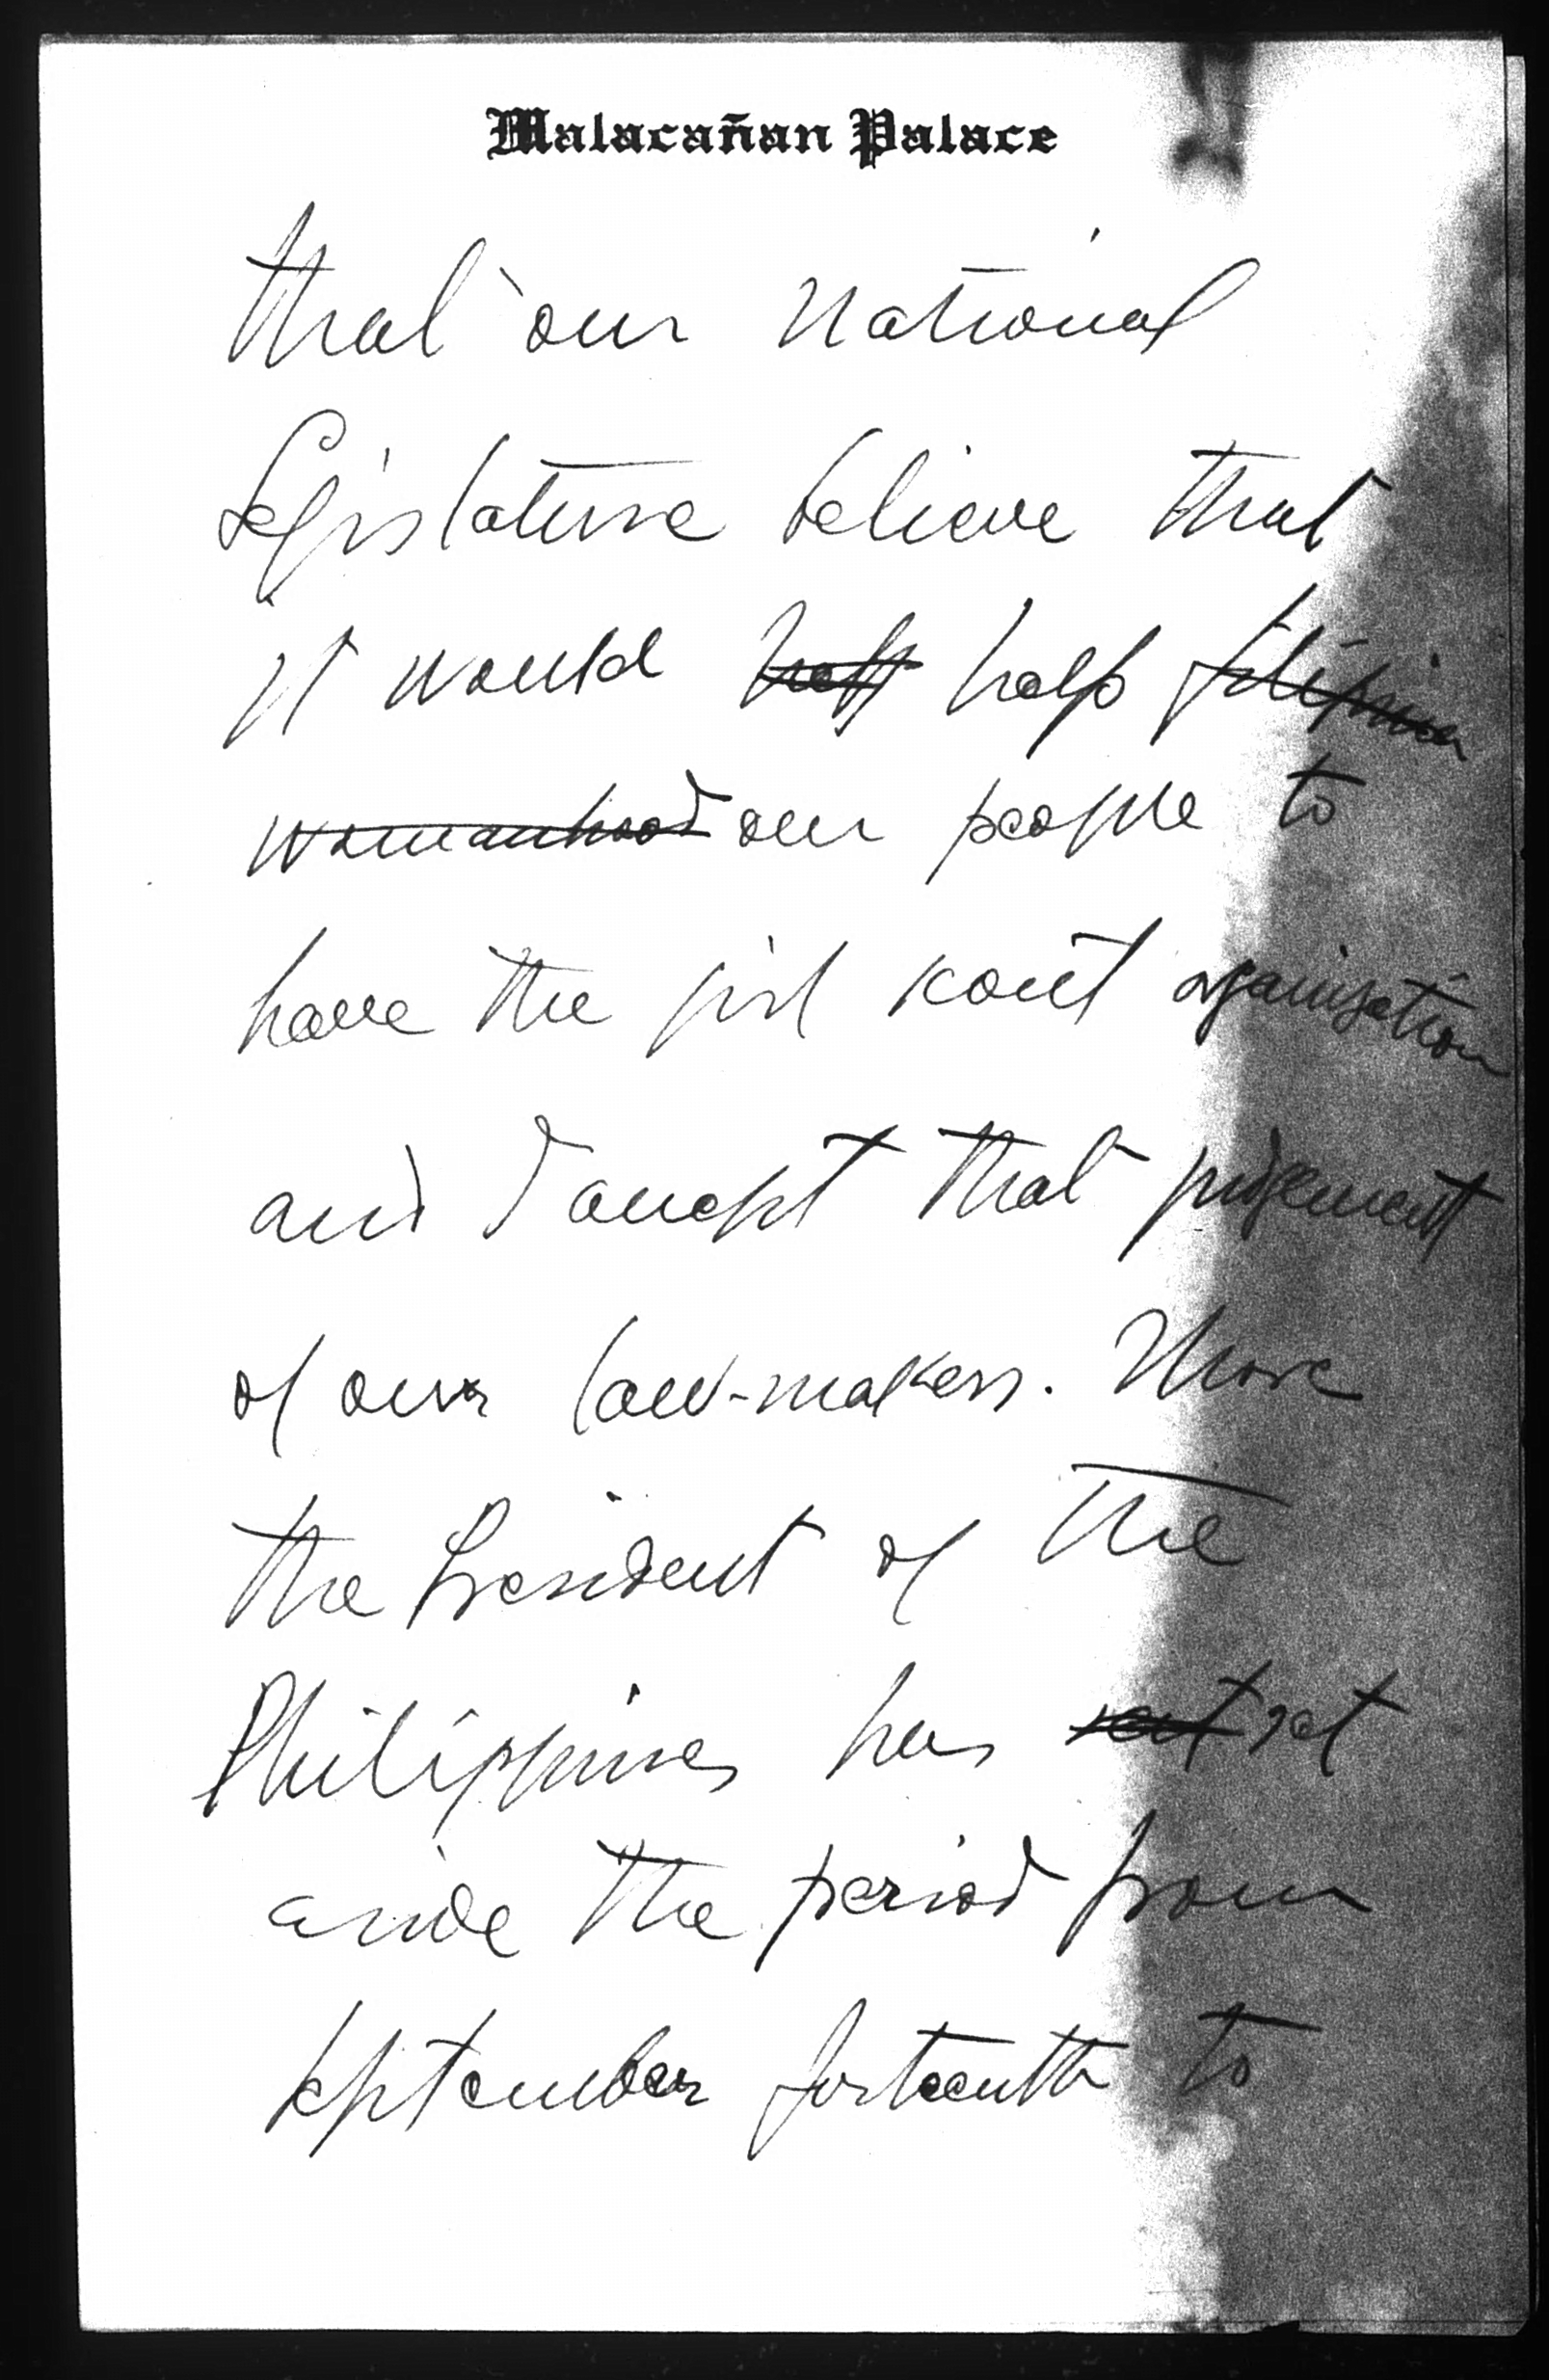 Malacañan Palace
that our National
Legislature believe that
it would help filipino
womanhood our people to
have the girl scout organization
and I accept that judgement
of our law-makers. More
the President of the
Philippines has sent set
aside the period from
September forteenth to